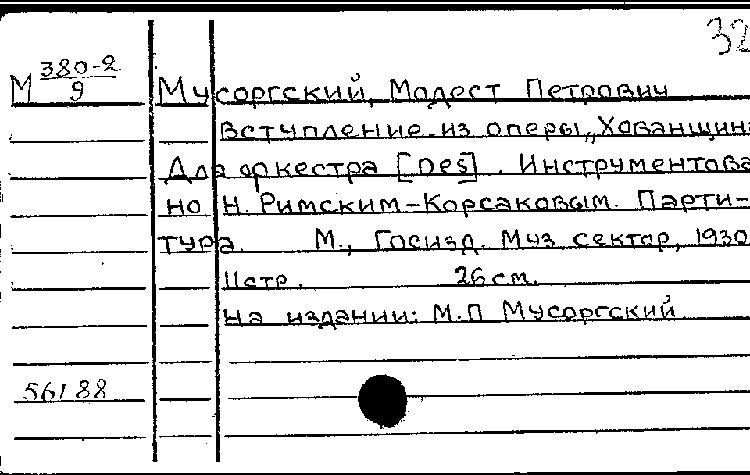 32
М 380-2/9 Мусоргский, Модест Петрович
Вступление из оперы „Хованщин
Для оркестра [Des]. Инструментова
но Н. Римским-Корсаковым. Парти-
тура. М., Госизд. Муз сектор, 1930
11стр. 26 см.
На издании: М.П Мусоргский
56188